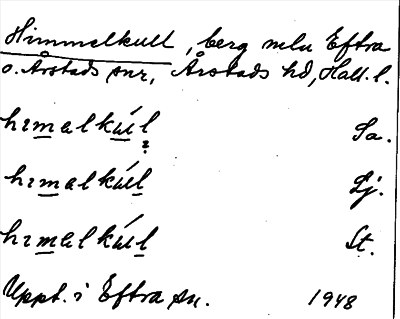 Himmelkull, berg mln Eftra
o. Årstads snr, Årstads hd, Hall. l.
hımalkúl Sa.
hımalkúl Lj.
hımalkúl St.
Uppt. i Eftra sn. 1948